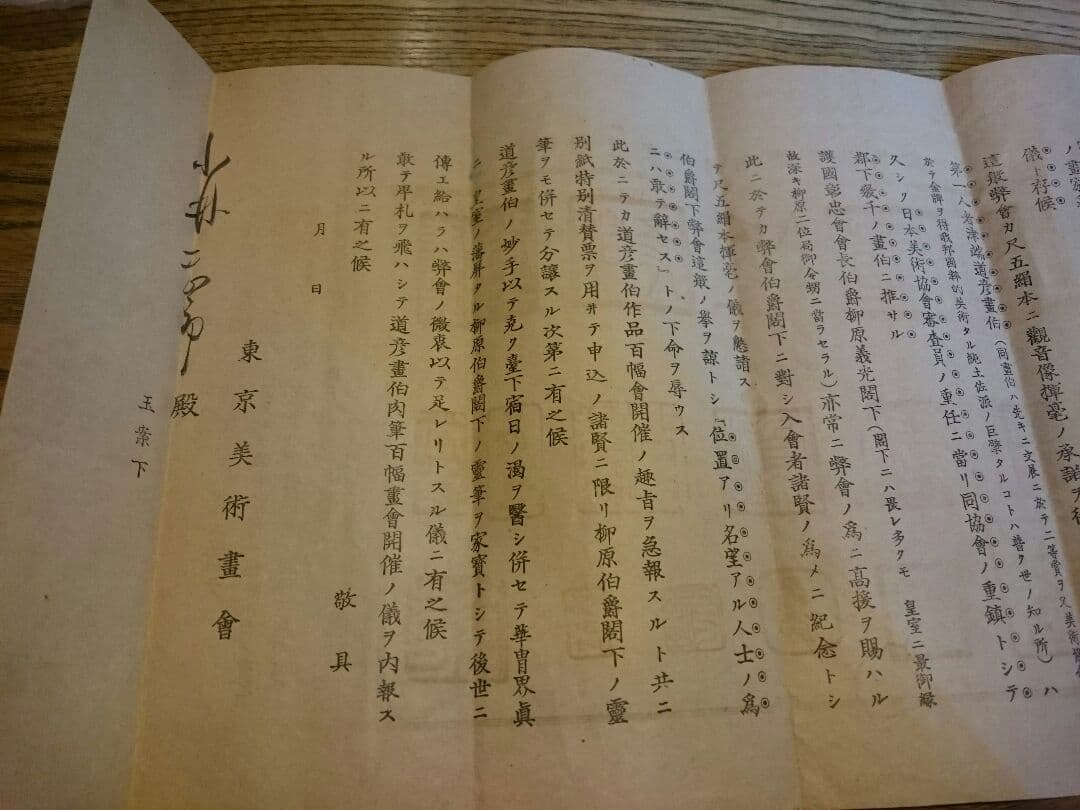 ノ畫家
儀ト存候
這般弊會カ尺五絹本ニ觀音像揮毫ノ承諾ヲ
第一人者津端道彦畫伯(同畫伯ハ先キニ文展ニ於テ二等賞ヲ又美術
於テ金牌ヲ得我邦固粹的美術タル純土佐派ノ巨擘タルコトハ普ク世ノ知ル所)ハ
久シク日本美術協會審査員ノ重任ニ當リ同協會ノ重鎮トシテ
都下數千ノ畫伯ニ推サル
護國彰忠會會長伯爵柳原義光閣下(閣下ニハ畏レ多クモ 皇室ニ最御縁
故深キ柳原二位局御令甥ニ當ラセラル)亦常ニ弊會ノ爲ニ高援ヲ賜ハル
此ニ於テカ弊會伯爵閣下ニ對シ入會者諸賢ノ爲メニ紀念トシ
テ尺五絹本揮毫ノ儀ヲ懇請ス
伯爵閣下弊會這般ノ擧ヲ諒トシ「位置アリ名望アル人士ノ爲
ニハ敢テ辭セス」トノ下命ヲ辱ウス
此於ニテカ道彦畫伯作品百幅會開催ノ趣旨ヲ急報スルト共ニ
別紙特別清賛票ヲ用井テ申込ノ諸賢ニ限リ柳原伯爵閣下ノ靈
筆ヲモ併セテ分讓スル次第ニ有之候
道彦畫伯ノ妙手以テ克ク臺下宿日ノ渴ヲ醫シ併セテ華冑界眞
ニ皇室ノ藩屏タル柳原伯爵閣下ノ靈筆ヲ家寶トシテ後世ニ
傳エ給ハラハ弊會ノ微衷以テ足レリトスル儀ニ有之候
敢テ早札ヲ飛ハシテ道彦畫伯肉筆百幅畫會開催ノ儀ヲ内報ス
ル所以ニ有之候
敬具
月 日
東京美術畫會
小林二四郎殿
玉案下